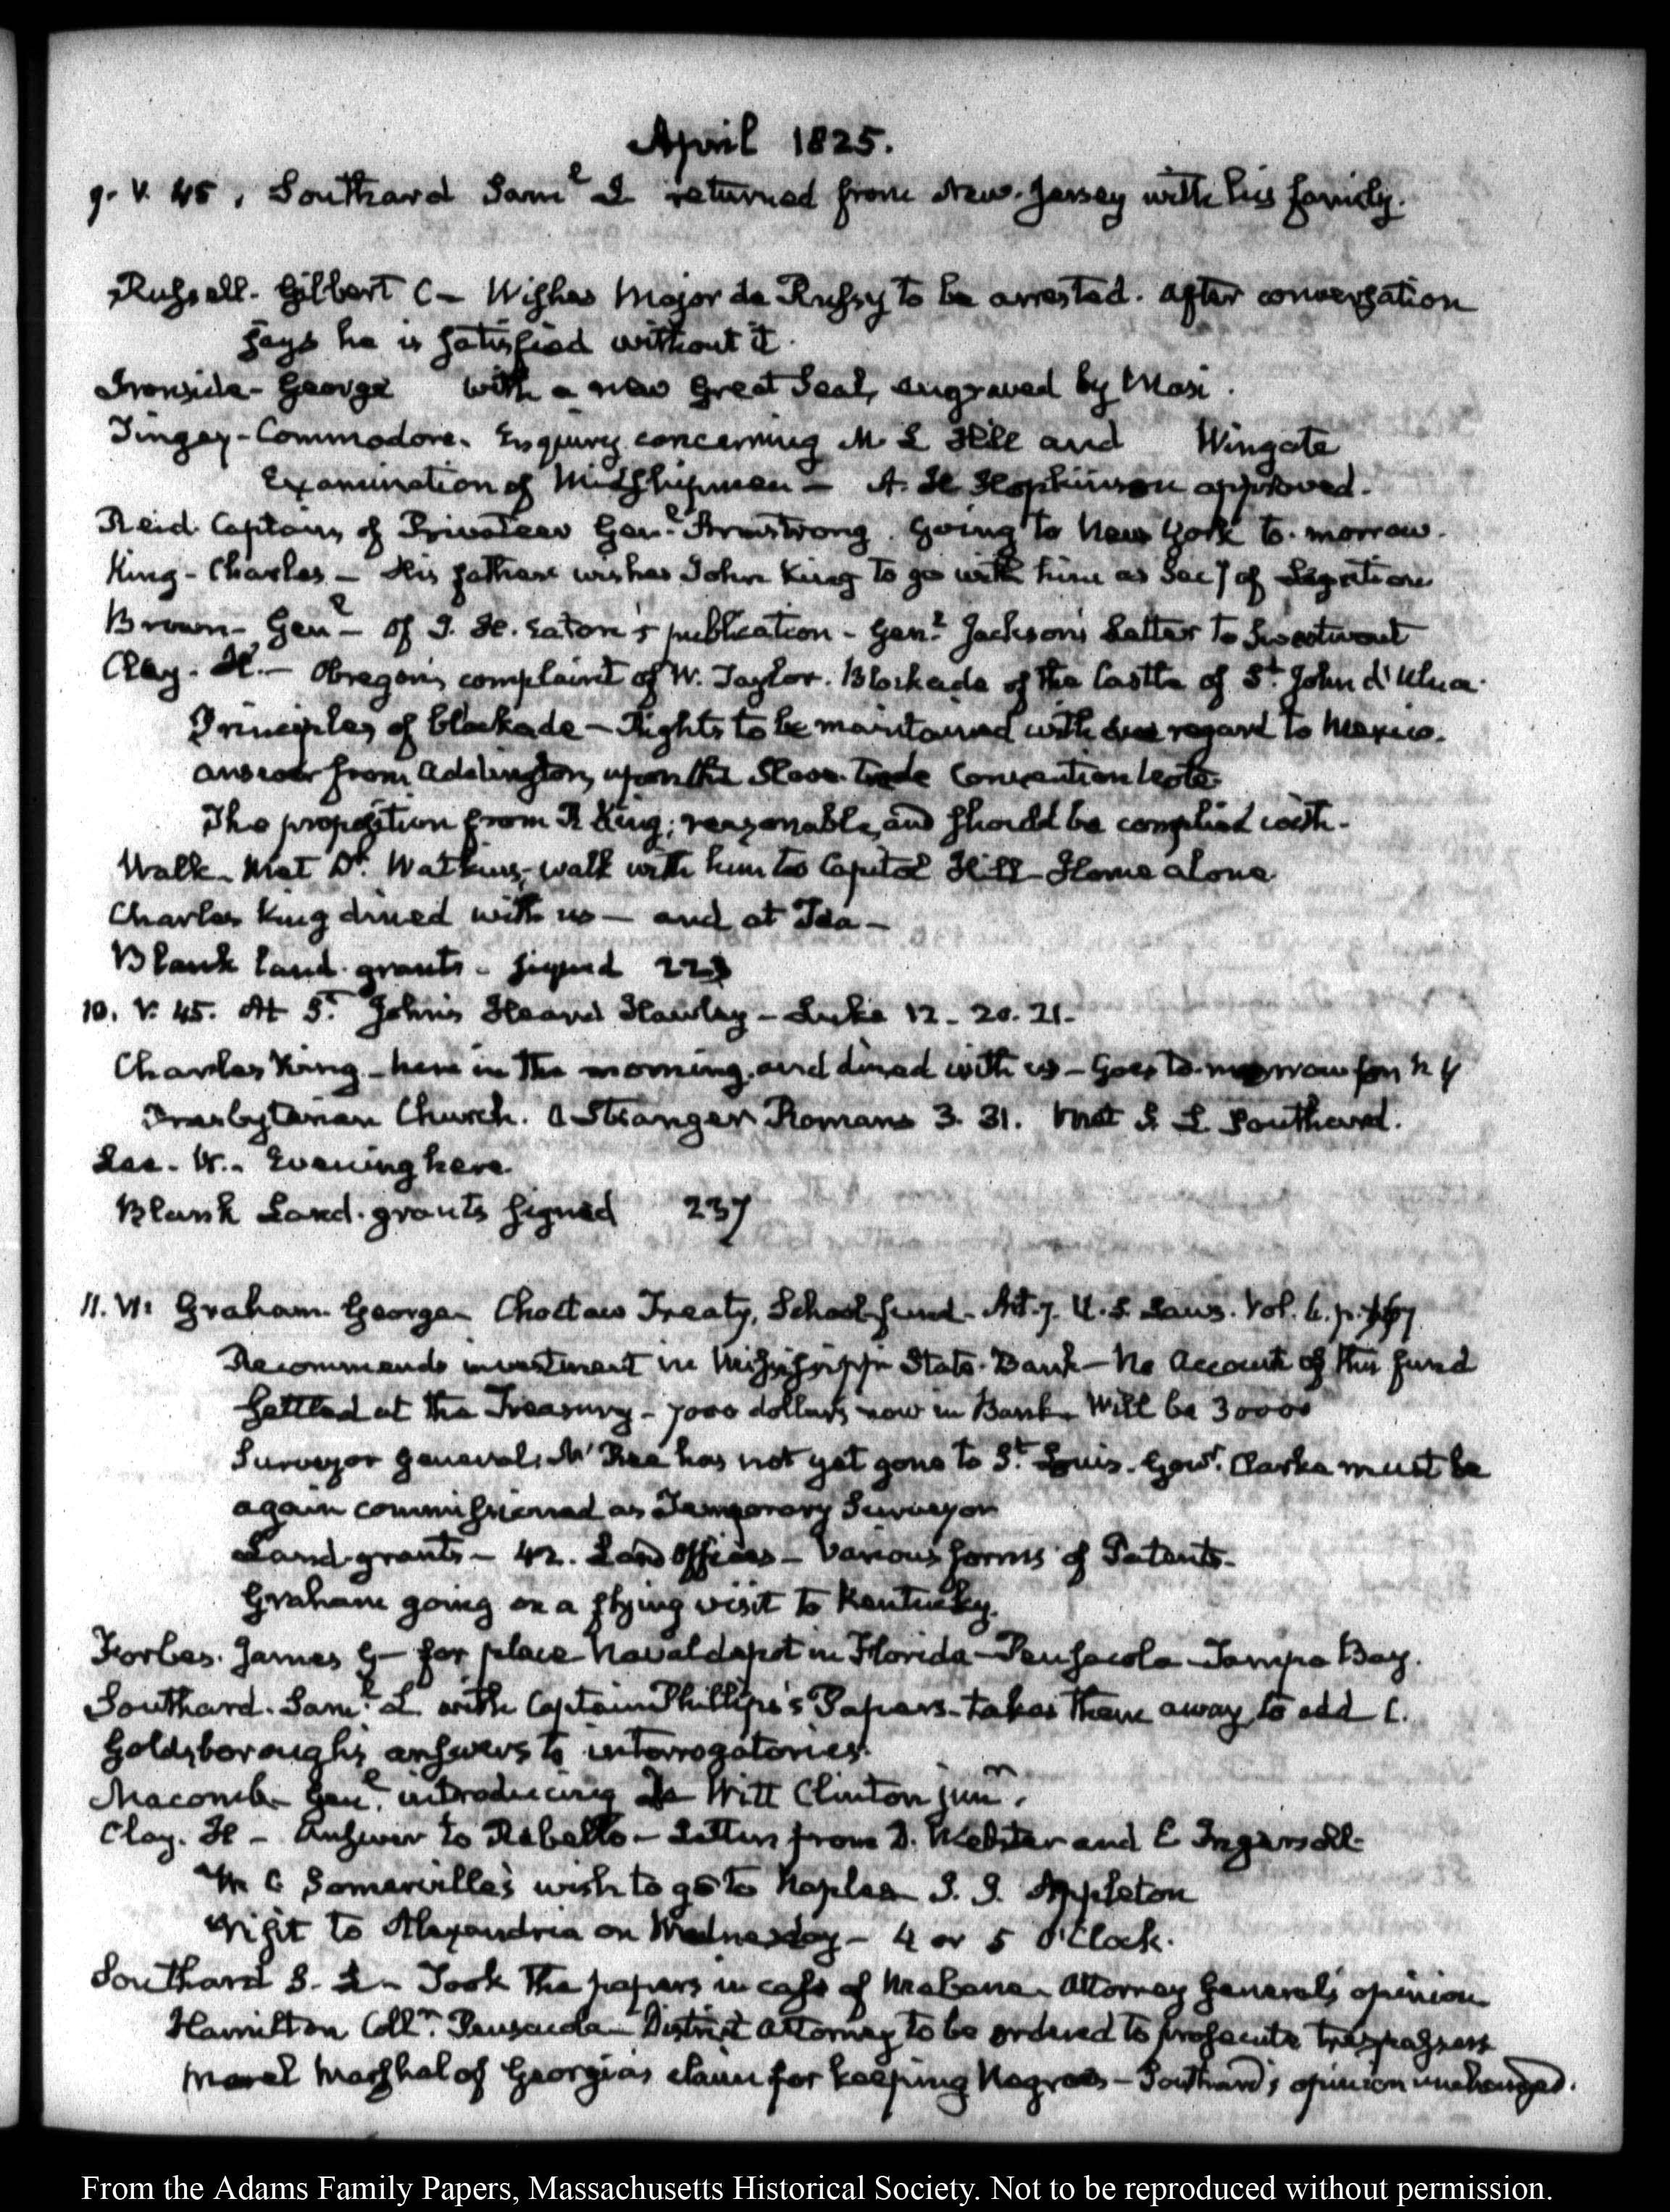 April 1825.
9. V. 45. Southard Sam.l L returned from New-Jersey with his family.
Russell. Gilbert C— Wishes Major de Russy to be arrested. After conversation
says he is satisfied without it.
Ironside- George with a new Great Seal, engraved by Masi.
Tingey- Commodore. Enquiry concerning M. L Hill and Wingate
Examination of Midshipmen— A. H Hopkinson approved.
Reid Captain, of Privateer Gen.l Armstrong. Going to New York to-morrow.
King- Charles— His father wishes John King to go with him as Sec.y of Legation
Brown- Gen.l— of J. H. Eaton's publication- Gen.l Jackson's Letter to Swartwout
Clay- H.— Obregon's complaint of W. Taylor. Blockade of the Castle of S.t John d'Ulua.
Principles of blockade— Rights to be maintained with due regard to Mexico.
answer from Addington, upon the Slave-trade Convention Note.
The proposition from R King; reasonable, and should be complied with.
Walk- Met Dr. Watkins, walk with him to Capitol Hill- Home alone
Charles King dined with us— and at Tea—
Blank land-grants- signed 223
10. V. 45. At S.t John's Heard Hawley— Luke 12. 20. 21.
Charles King- here in the morning, and dined with us— Goes to-morrow for N Y
Presbyterian Church. A Stranger Romans 3. 31. Met S. L Southard.
Lee- W.- Evening here
Blank Land-grants signed 237
11. VI: Graham George- Choctaw Treaty, School fund- Art. 7. U. S. Laws. Vol. 6. p.
Recommends investment in Mississippi State-Bank— No Account of this fund
settled at the Treasury- 7000 dollars now in Bank- Will be 30000
Surveyor General, McRee has not yet gone to S.t Louis. Gov.r Clarke must be
again commissioned as Temporary Surveyor
Land-grants- 42. Land Offices— Various forms of Patents-
Graham going on a flying visit to Kentucky.
Forbes. James G— for place Naval depot in Florida— Pensacola- Tampa Bay.
Southard. Sam.l L with Captain Phillips's Papers- takes them away, to add C.
Goldsborough's answers to interrogatories.
Macomb- Gen.l introducing De Witt Clinton jun.r
Clay. H— Answer to Rebello— Letters from D. Webster and C Ingersoll-
W C Somerville's wish to go to Naples- J. J. Appleton
Visit to Alexandria on Wednesday- 4 or 5 O'Clock.
Southard S. L- Took the papers in case of Mebane- Attorney General's opinion
Hamilton Coll.r Pensacola- District Attorney to be ordered to prosecute trespassers
Morel Marshal of Georgia's claim for keeping Negroes- Southard's opinion unchanged.
From the Adams Family Papers, Massachusetts Historical Society. Not to be reproduced without permission.